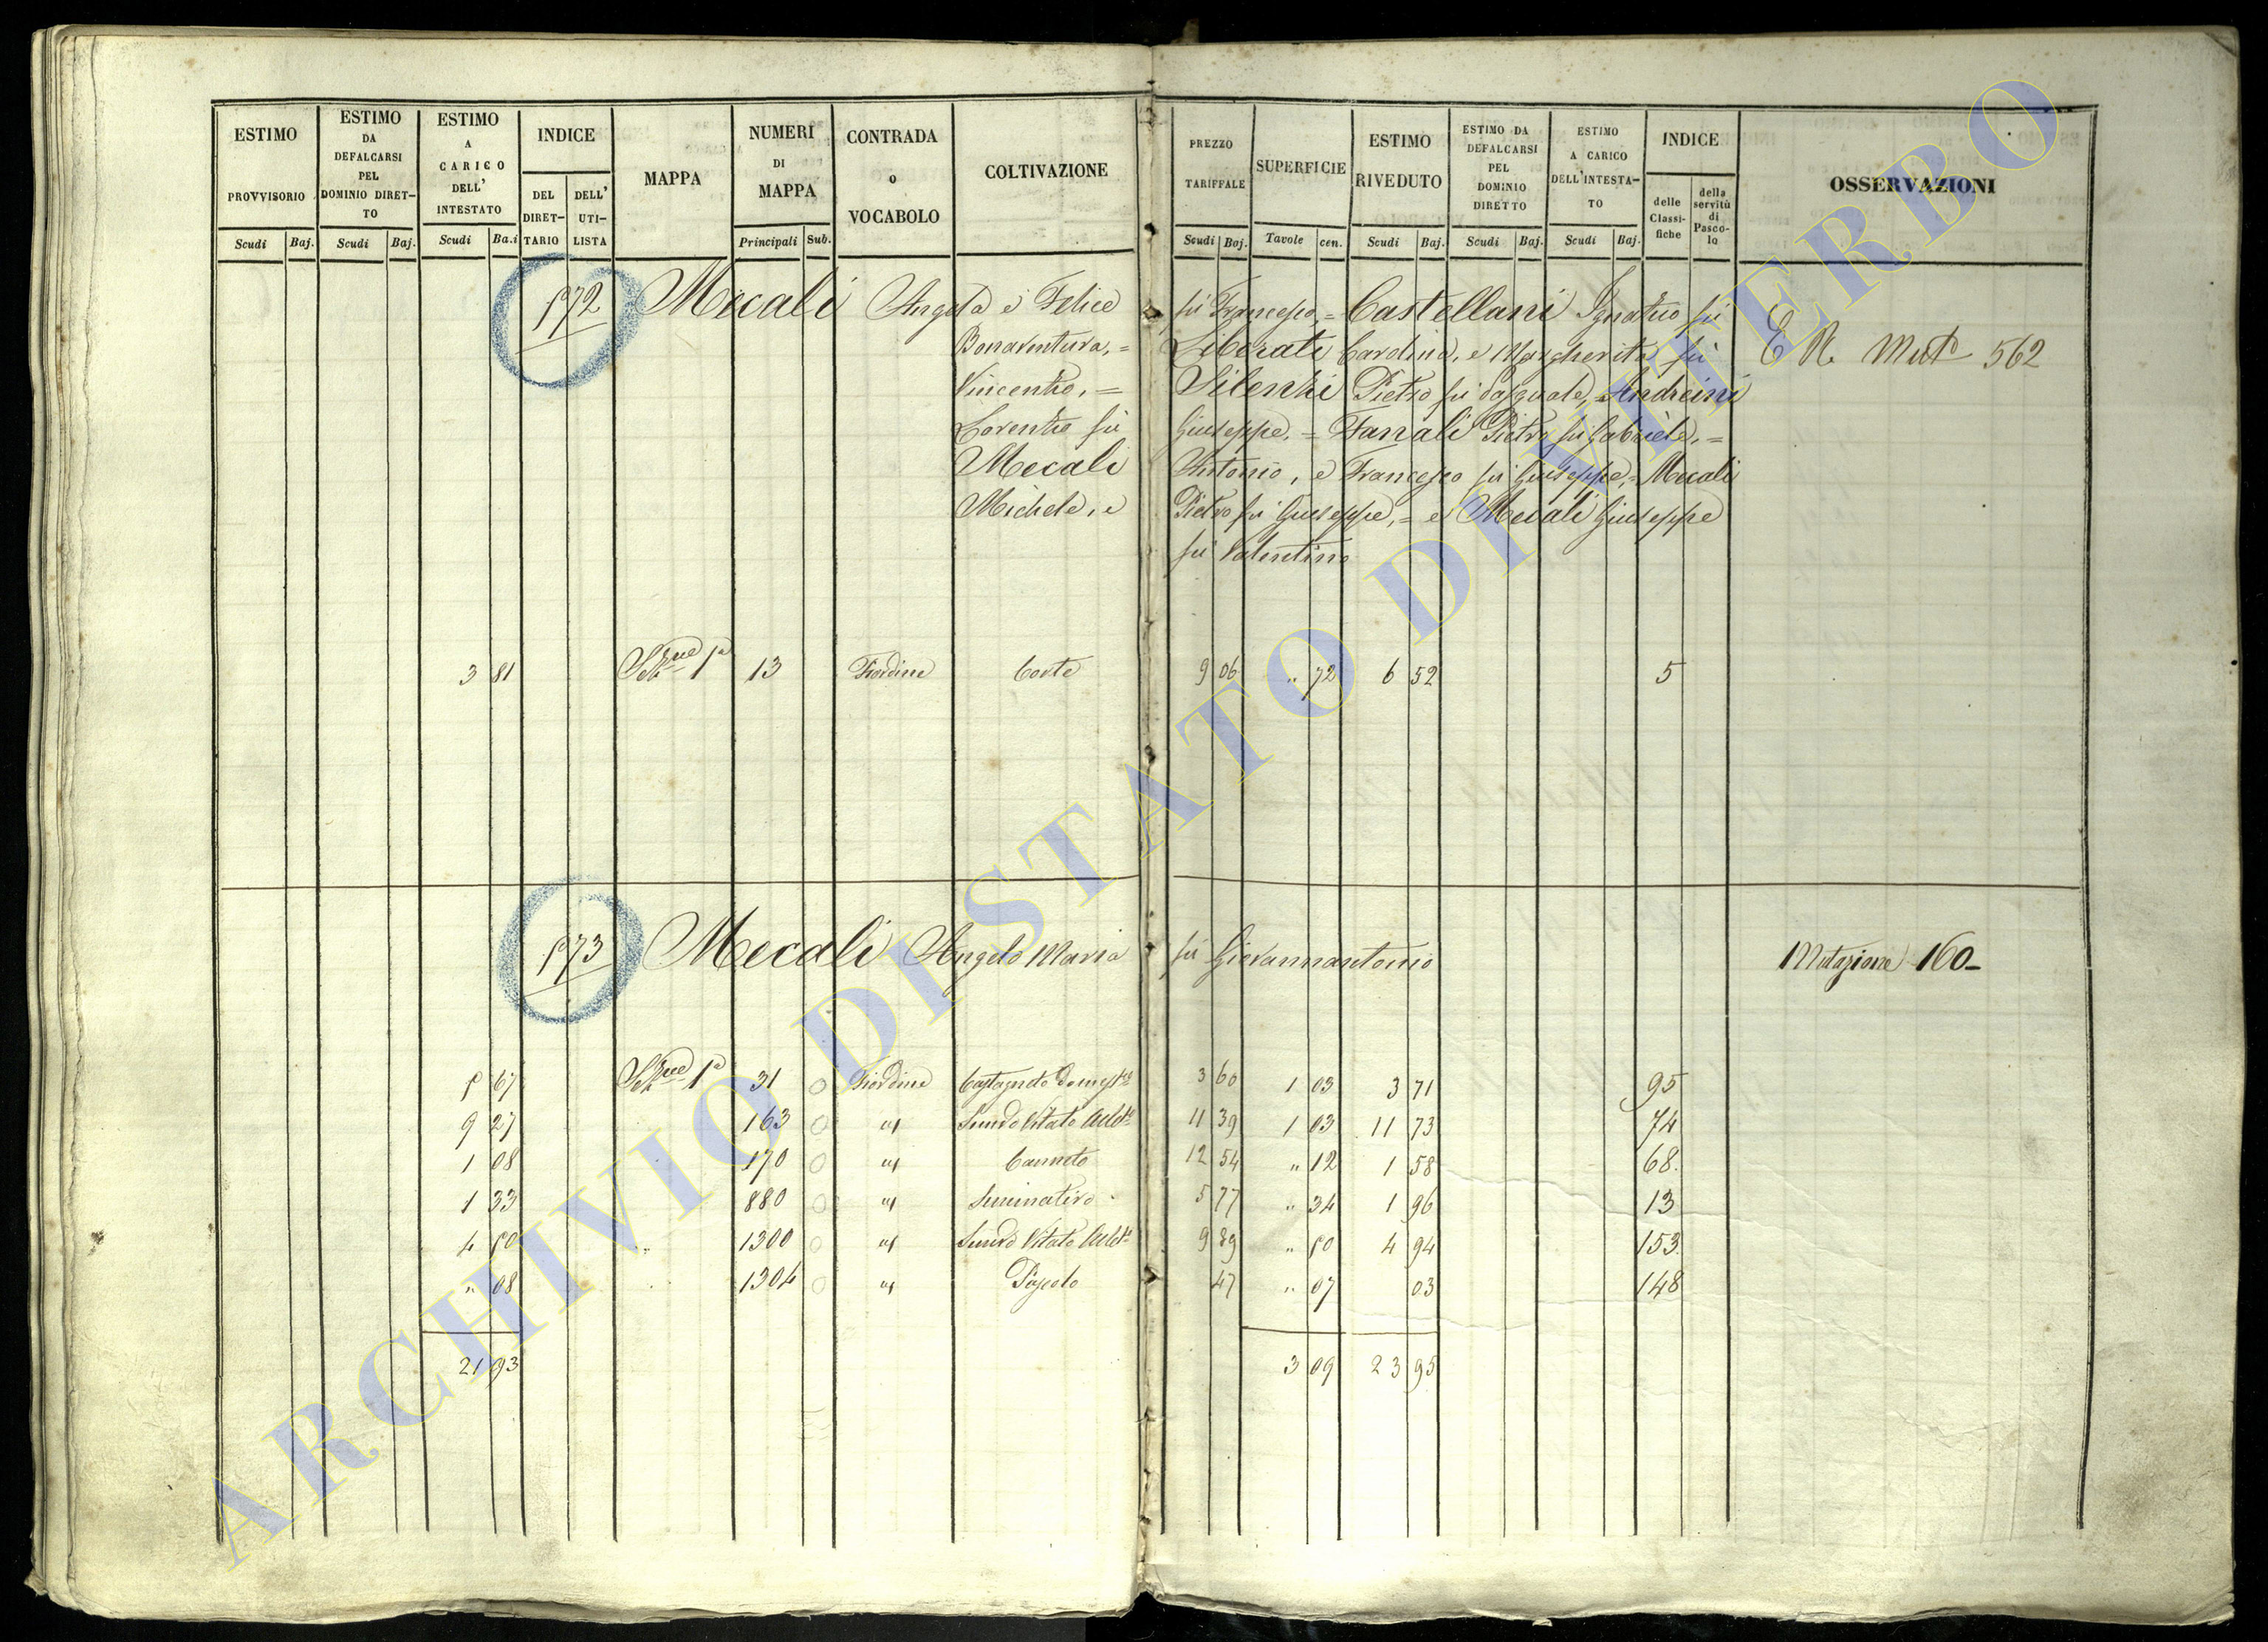 ESTIMO PROVVISORIO Scudi Baj.
ESTIMO DA DEFALCARSI PEL DOMINIO DIRET-TO Scudi Baj.
ESTIMO A CARICO DELL' INTESTATO Scudi Ba.i
INDICE DEL DIRET-TARIO DELL' UTI-LISTA
MAPPA
NUMERI DI MAPPA Principali Sub.
CONTRADA o VOCABOLO
COLTIVAZIONE
PREZZO TARIFFALE Scudi Boj.
SUPERFICIE Tavole cen.
ESTIMO RIVEDUTO Scudi Baj.
ESTIMO DA DEFALCARSI PEL DOMINIO DIRETTO Scudi Baj.
ESTIMO A CARICO DELL'INTESTA-TO Scudi Baj.
INDICE delle Classi-fiche della servitù di Pasco-lo
OSSERVAZIONI
572 Mecali Angela e Felice fu Francesco, = Castellani Ignatio fu
Bonaventura, = Liberati Carolina, e Margherita fu E R Mut.e 562
Vincentio, = Silenzi Pietro fu Pasquale, = Andreini
Lorentio fu Giuseppe, = Fanali Pietro fu Gabriele, =
Mecali Antonio, e Francesco fu Giuseppe, = Mecali
Michele, e Pietro fu Giuseppe, = e Mecali Giuseppe
fu Valentino
3 81 Sez.ne 1a 13 Fiordine Corte 9 06 " 72 6 52 5
573 Mecali Angelo Maria fu Giovannantonio Mutazione 160-
5 67 Sez.ne 1a 31 0 Fiordine Castagneto domest.co 3 60 1 03 3 71 95
9 27 163 0 " Semvo Vitato Allb.to 11 39 1 03 11 73 74
1 08 170 0 " Canneto 12 54 " 12 1 58 68.
1 33 880 0 " Seminativo 5 77 " 34 1 96 13
4 50 " 1300 0 " Semvo Vitato Allb.to 9 89 " 50 4 94 153.
" 08 1304 0 " Pascolo 47 " 07 03 148
21 93 3 09 23 95
ARCHIVIO DI STATO DI VITERBO